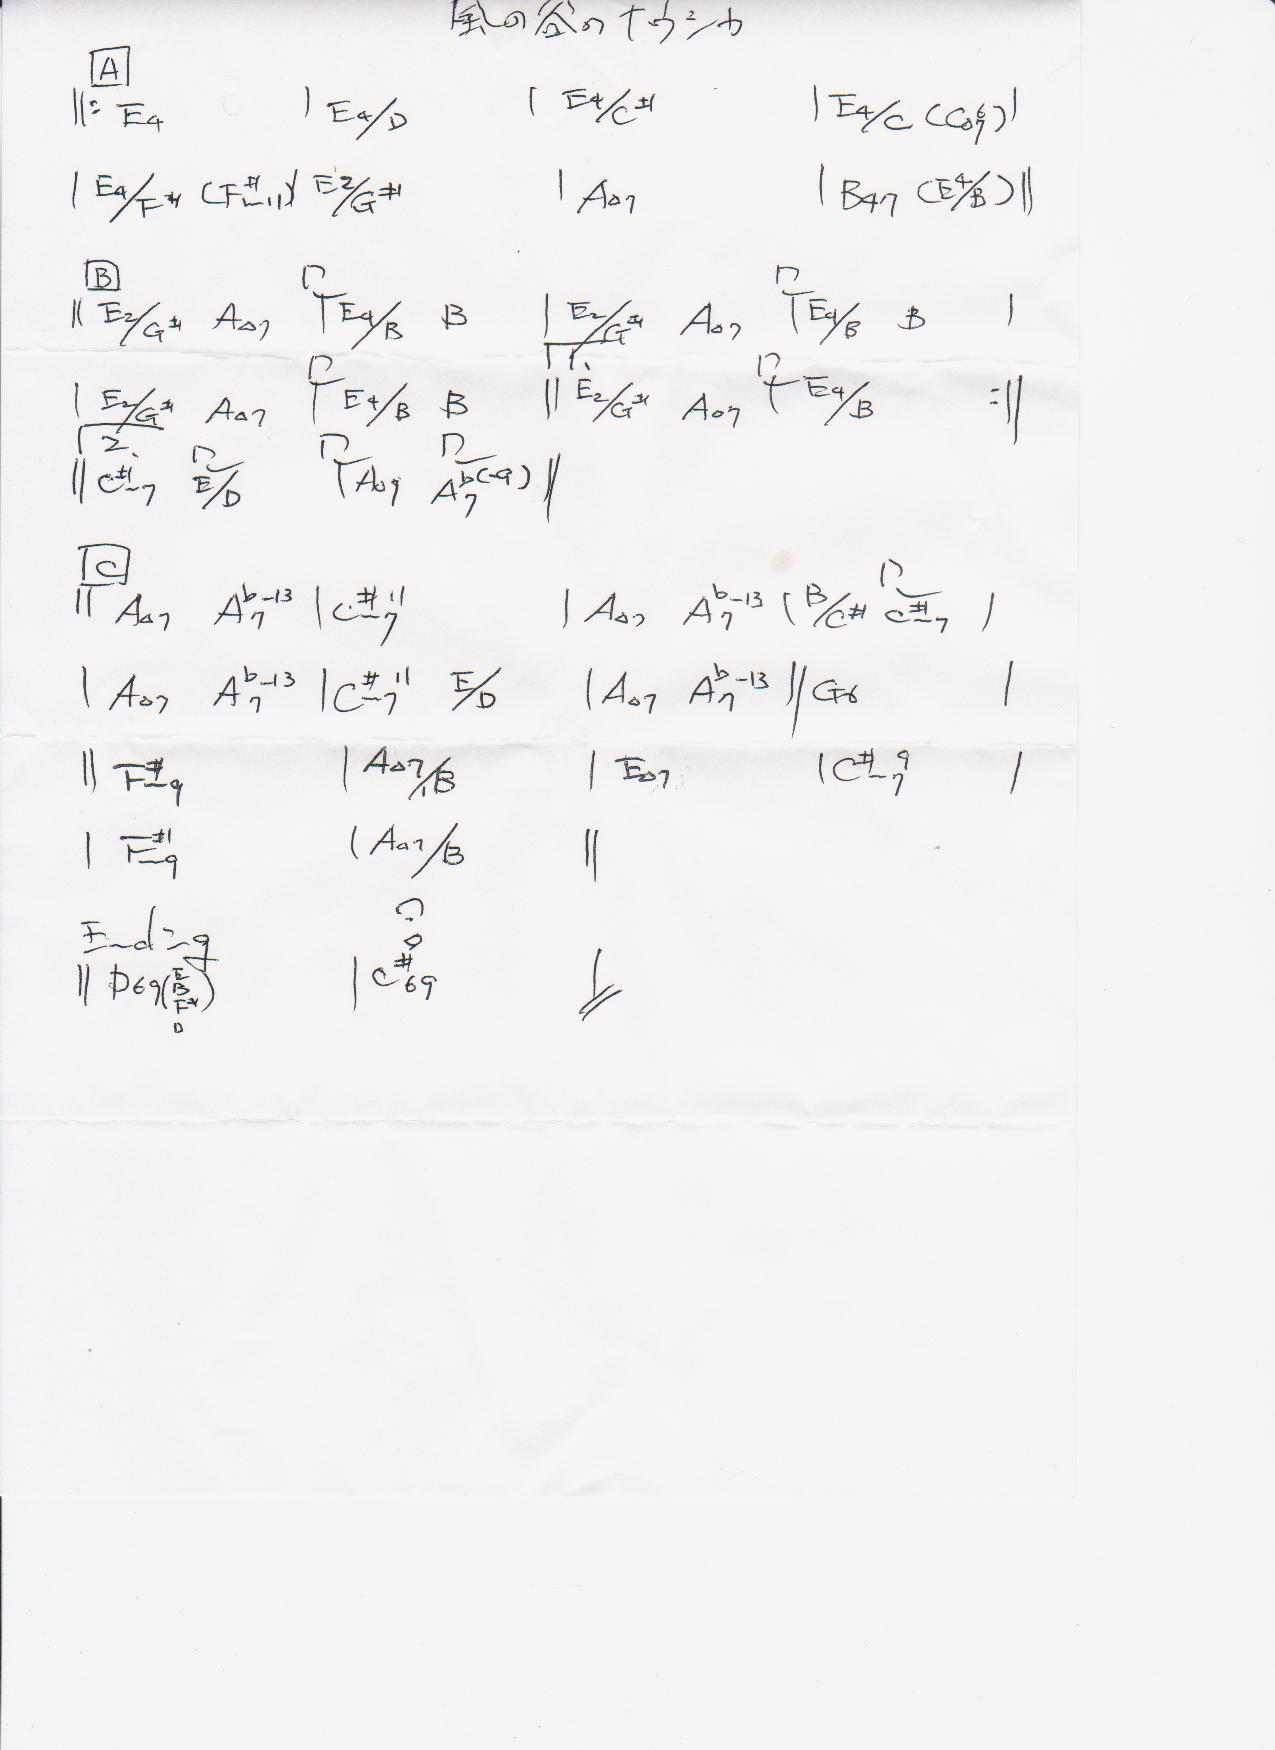 風の谷のナウシカ
A
||: E4 | E4/D | E4/C# | E4/C (C△6/7) |
| E4/F# (F#-11) | E2/G# | A△7 | B47 (E4/B) ||
B
|| E2/G# A△7 E4/B B | E2/G# A△7 E4/B B |
| E2/G# A△7 E4/B B || 1. E2/G# A△7 E4/B :||
2.
|| C#-7 E/D A△9 Ab7(-9) ||
C
|| A△7 Ab7-13 | C#-7 11 | A△7 Ab7-13 | B/C# C#-7 |
| A△7 Ab7-13 | C#-7 11 E/D | A△7 Ab7-13 || G6 |
|| F#-9 | A△7/B | E△7 | C#-7 9 |
| F#-9 | A△7/B ||
Ending
|| D69 (E B F# D) | C#69